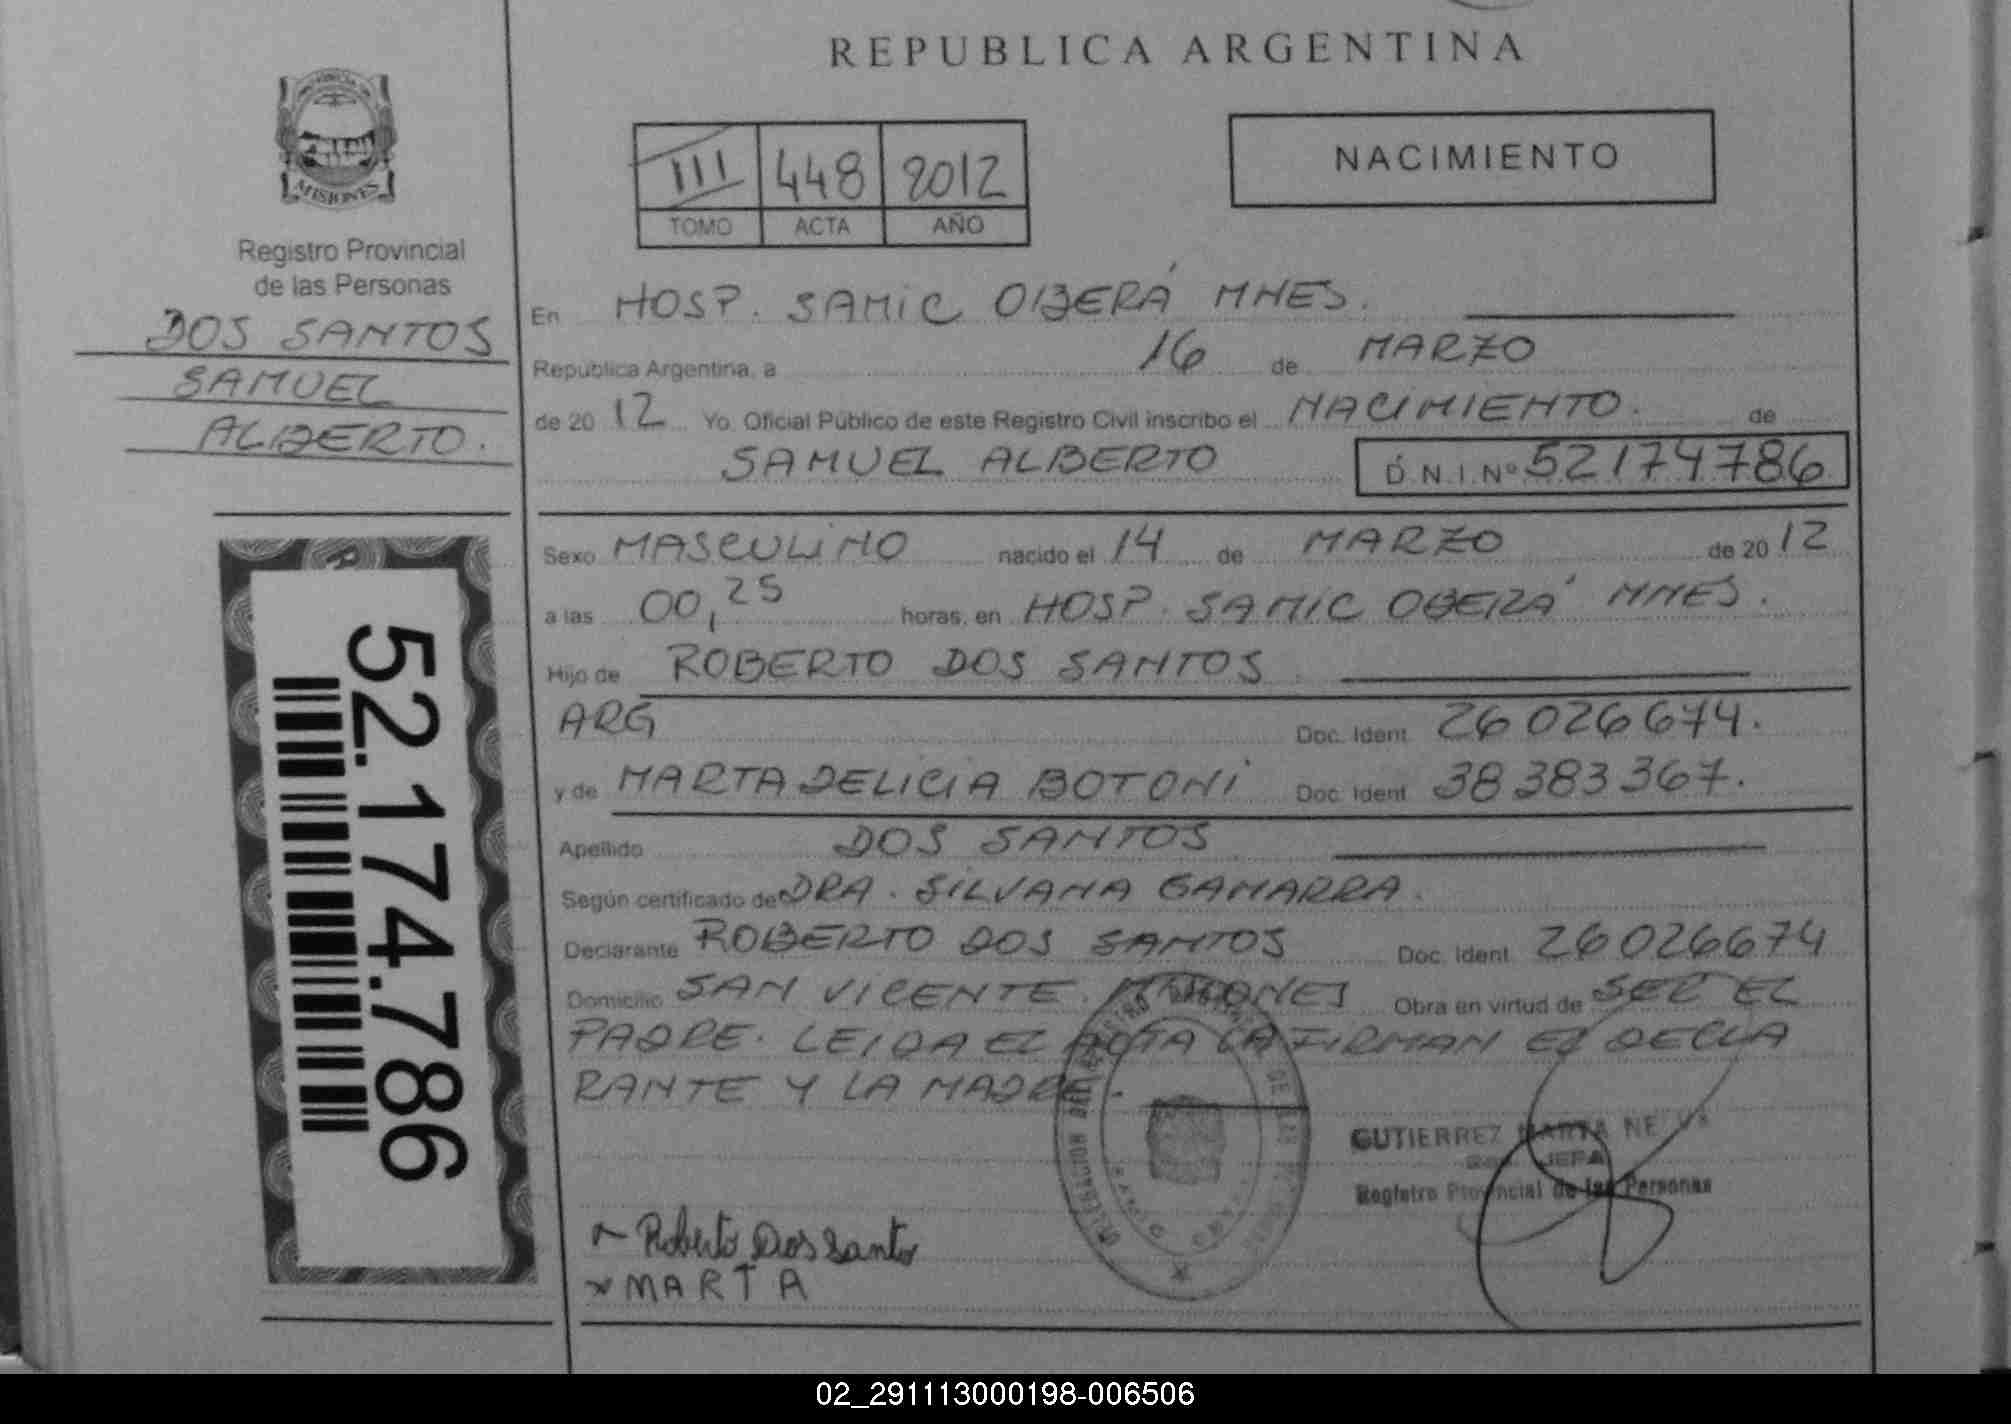 REPUBLICA ARGENTINA
PROVINCIA
MISIONES
Registro Provincial
de las Personas
DOS SANTOS
SAMUEL
ALBERTO.
52.174.786
III 448 2012
TOMO ACTA AÑO
NACIMIENTO
En HOSP. SAMIC OBERÁ MNES.
República Argentina, a 16 de MARZO
de 2012 Yo Oficial Público de este Registro Civil inscribo el NACIMIENTO. de
SAMUEL ALBERTO D.N.I.Nº 52174786
Sexo MASCULINO nacido el 14 de MARZO de 2012
a las 00,25 horas, en HOSP. SAMIC OBERÁ MNES.
Hijo de ROBERTO DOS SANTOS
ARG Doc. Ident. 26026674.
y de MARTA DELICIA BOTONI Doc. Ident. 38383367.
Apellido DOS SANTOS
Según certificado de DRA. SILVANA GAMARRA.
Declarante ROBERTO DOS SANTOS Doc. Ident. 26026674
Domicilio SAN VICENTE MISIONES Obra en virtud de SER EL
PADRE. LEIDA EL ACTA LA FIRMAN EL DECLA
RANTE Y LA MADRE.
GUTIERREZ MARTA
JEFA
Registro Provincial de las Personas
Roberto Dos Santos
x MARTA
02_291113000198-006506